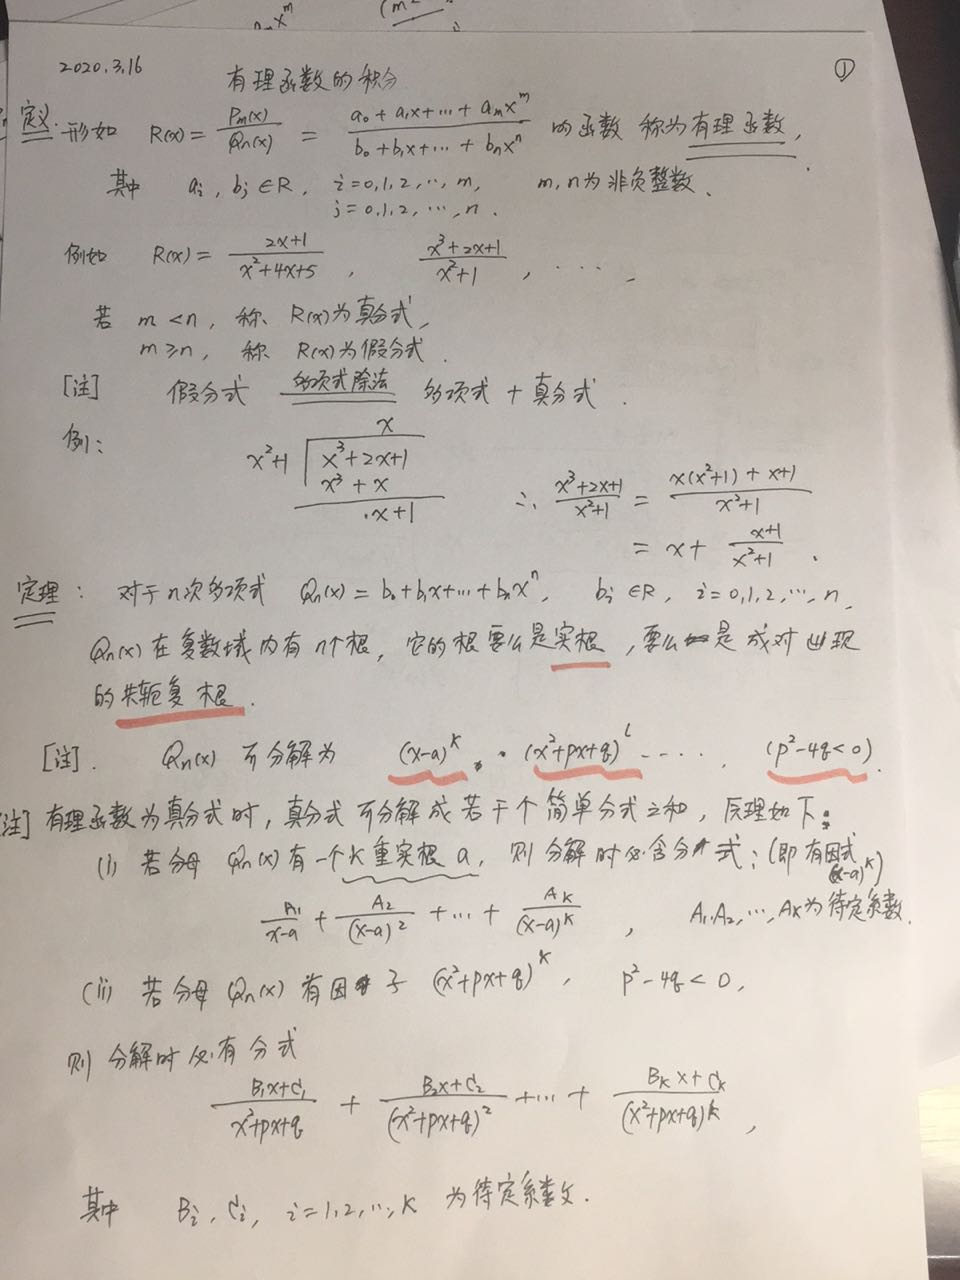 2020.3.16
①
有理函数的积分
定义: 形如 R(x) = Pm(x)/Qn(x) = (a₀ + a₁x + ⋯ + aₘxᵐ)/(b₀ + b₁x + ⋯ + bₙxⁿ) 的函数 称为有理函数,
其中 aᵢ, bⱼ ∈ R, i=0,1,2,⋯,m, m,n为非负整数.
j=0,1,2,⋯,n.
例如 R(x) = (2x+1)/(x²+4x+5), (x³+2x+1)/(x²+1), ⋯.
若 m<n, 称 R(x)为真分式,
m≥n, 称 R(x)为假分式.
[注] 假分式 多项式除法 多项式 + 真分式.
例: x
x²+1 x³+2x+1
x³+x
x+1
∴ (x³+2x+1)/(x²+1) = (x(x²+1)+x+1)/(x²+1)
= x + (x+1)/(x²+1).
定理: 对于n次多项式 Qn(x) = b₀+b₁x+⋯+bₙxⁿ, bᵢ∈R, i=0,1,2,⋯,n,
Qn(x)在复数域内有n个根, 它的根要么是实根, 要么是成对出现
的共轭复根.
[注]. Qn(x) 可分解为 (x-a)ᵏ · (x²+px+q)ˡ ⋯. (p²-4q<0).
注] 有理函数为真分式时, 真分式可分解成若干个简单分式之和, 原理如下:
(i) 若分母 Qn(x)有一个k重实根a, 则分解时必含分式: (即有因式
(x-a)ᵏ)
A₁/(x-a) + A₂/(x-a)² + ⋯ + Aₖ/(x-a)ᵏ, A₁,A₂,⋯,Aₖ为待定系数.
(ii) 若分母 Qn(x)有因子 (x²+px+q)ᵏ, p²-4q<0,
则分解时必有分式
(B₁x+C₁)/(x²+px+q) + (B₂x+C₂)/(x²+px+q)² + ⋯ + (Bₖx+Cₖ)/(x²+px+q)ᵏ,
其中 Bᵢ, Cᵢ, i=1,2,⋯,k 为待定系数.